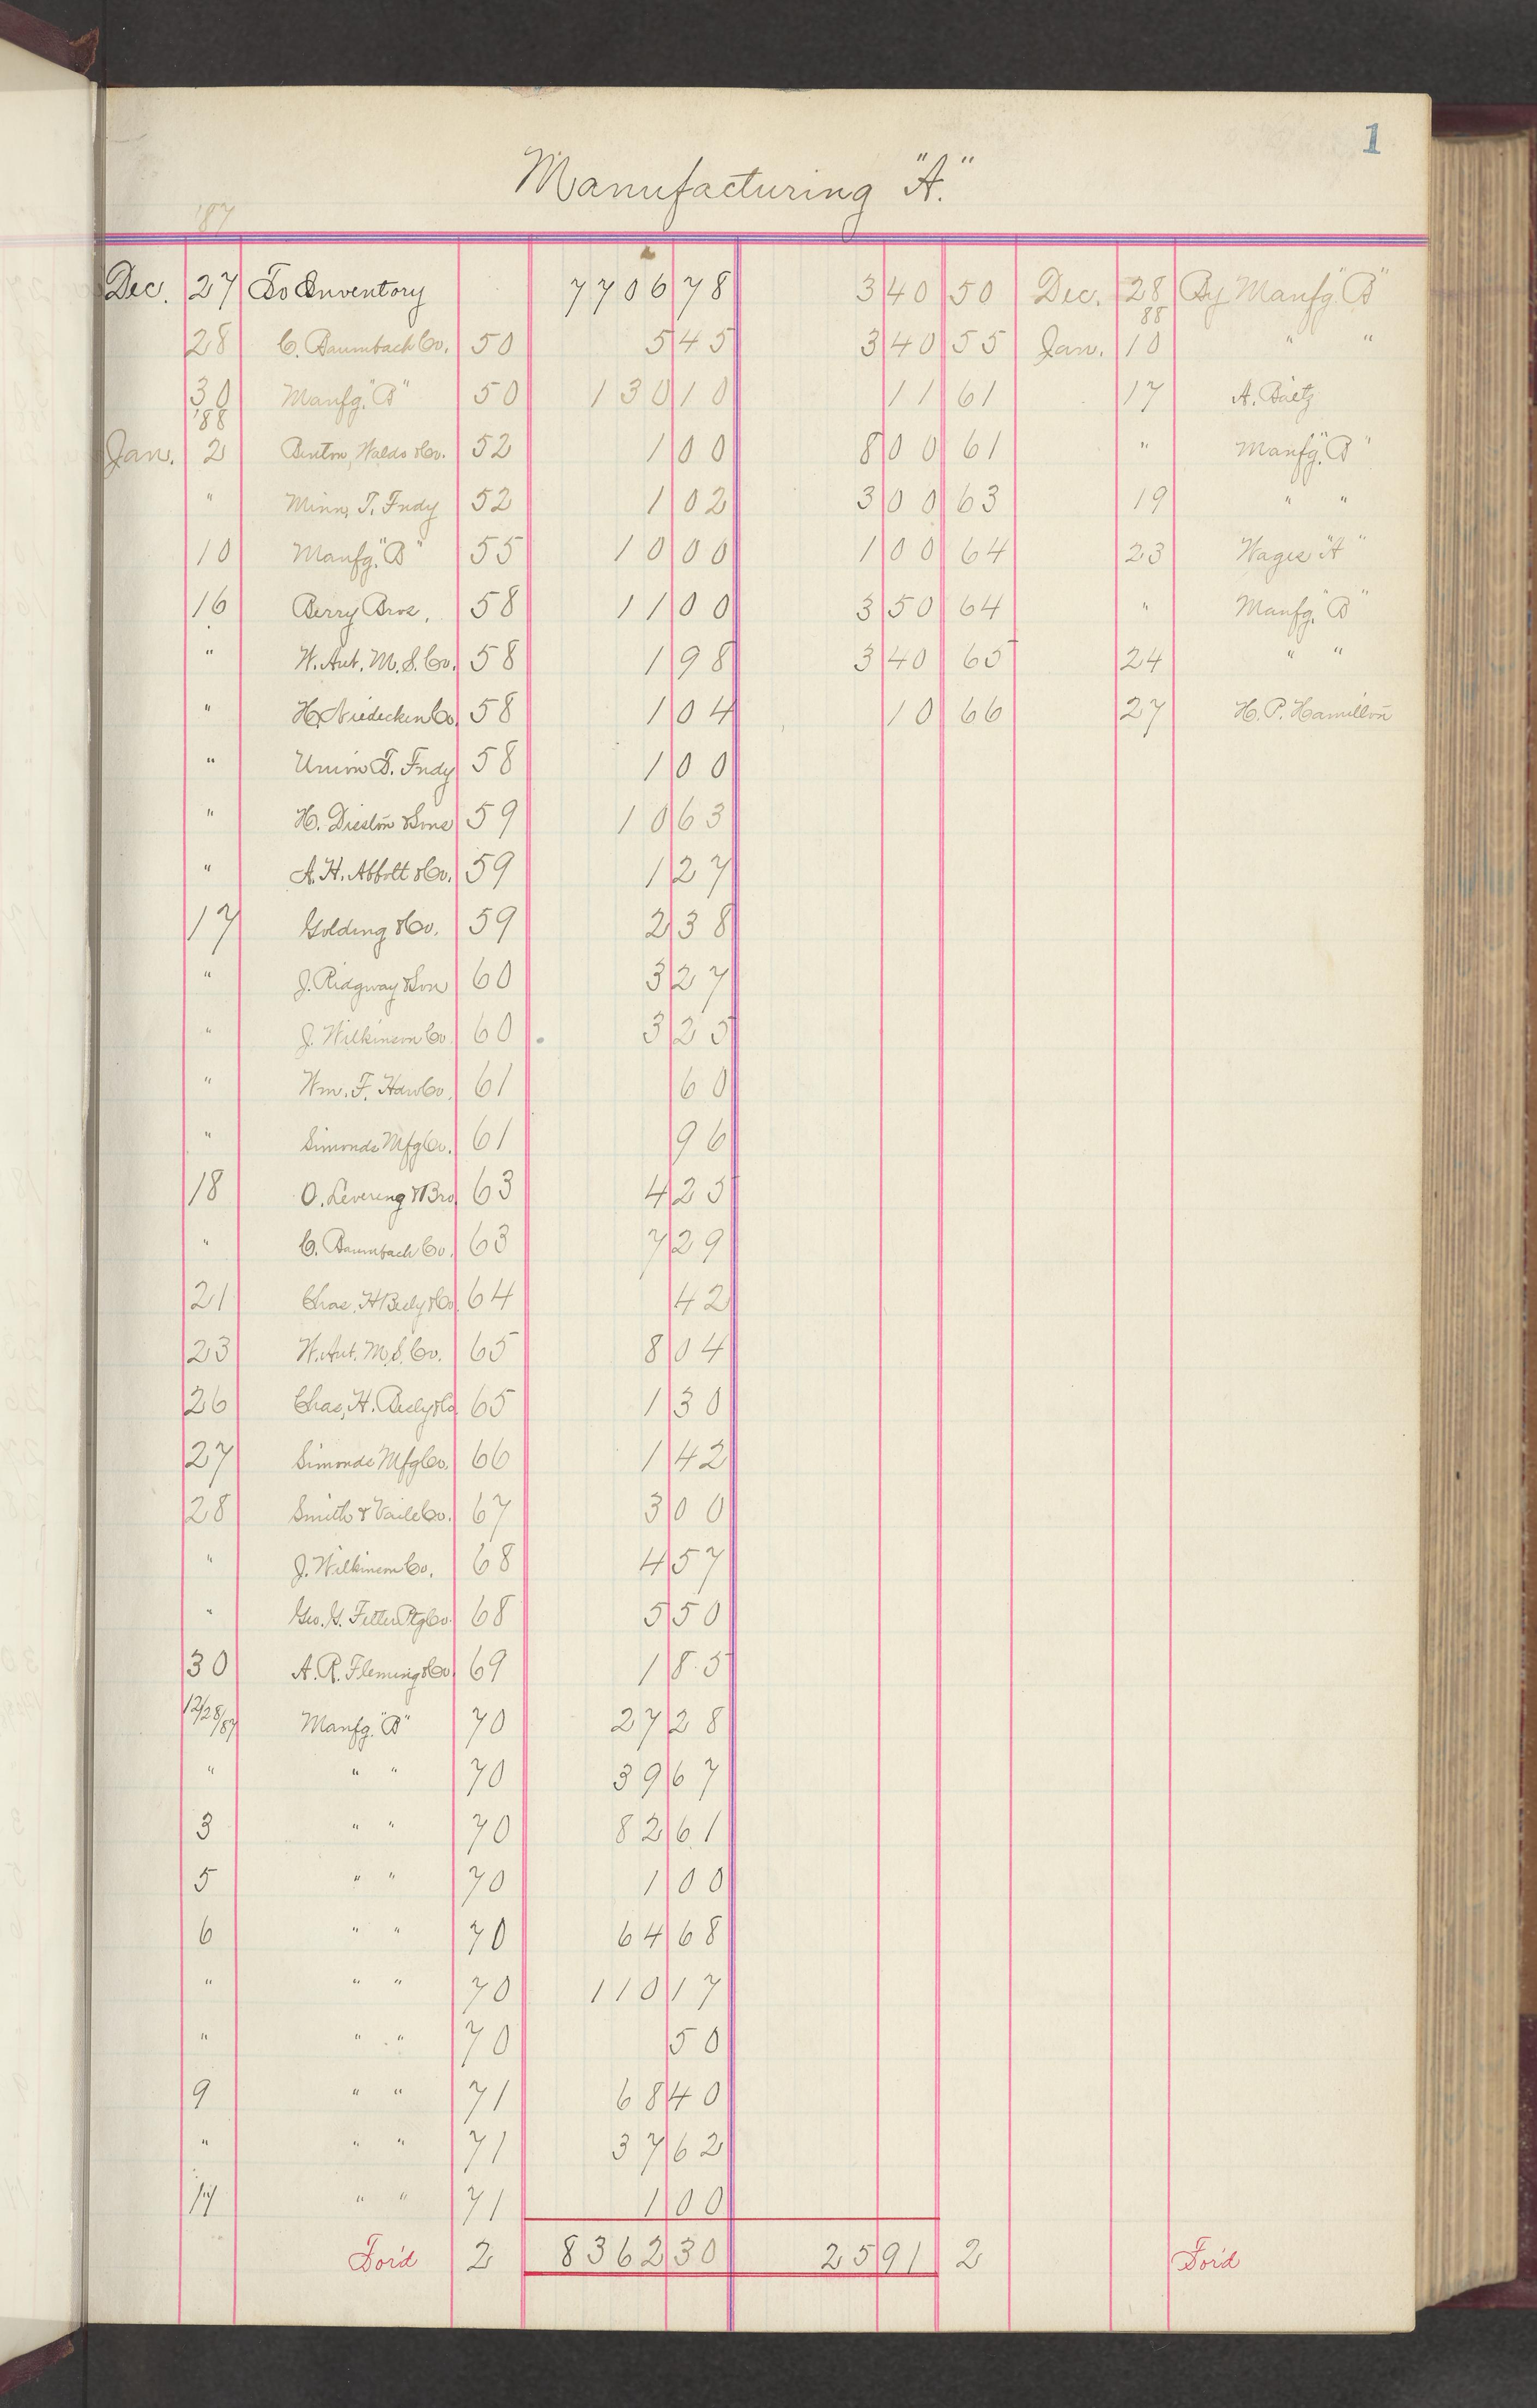 1
Manufacturing "A."
'87
Dec. 27 To Inventory 7706 78 3 40 50 Dec. 28 By Manfg. "B"
28 C. Baumbach Co. 50 5 45 3 40 55 '88 Jan. 10 " "
30 Manfg. "B" 50 130 10 11 61 17 A. Baetz
'88
Jan. 2 Benton, Waldo & Co. 52 1 00 8 00 61 " Manfg. "B"
" Minn. T. Fndy 52 1 02 3 00 63 19 " "
10 Manfg. "B" 55 10 00 1 00 64 23 Wages "A"
16 Berry Bros. 58 11 00 3 50 64 " Manfg. "B"
" N. Aut. M. S. Co. 58 1 98 3 40 65 24 " "
" H. Niedecken Co. 58 1 04 10 66 27 H. P. Hamilton
" Union T. Fndy 58 1 00
" H. Disston & Sons 59 10 63
" A. H. Abbott & Co. 59 1 27
17 Golding & Co. 59 2 38
" J. Ridgway & Son 60 3 27
" J. Wilkinson Co. 60 3 25
" Wm. F. Haw Co. 61 60
" Simonds Mfg Co. 61 96
18 O. Levering & Bro 63 4 25
" C. Baumbach Co. 63 7 29
21 Chas. H Besly & Co. 64 42
23 N. Aut. M. S. Co. 65 8 04
26 Chas. H. Besly & Co 65 1 30
27 Simonds Mfg Co. 66 1 42
28 Smith & Vaile Co. 67 3 00
" J. Wilkinson Co. 68 4 57
" Geo. G. Fetter Ptg Co. 68 5 50
30 A. R. Fleming & Co 69 1 85
12/28/87 Manfg. "B" 70 27 28
" " " 70 39 67
3 " " 70 82 61
5 " " 70 1 00
6 " " 70 64 68
" " " 70 110 17
" " " 70 50
9 " " 71 68 40
" " " 71 37 62
14 " " 71 1 00
For'd 2 8362 30 25 91 2 For'd